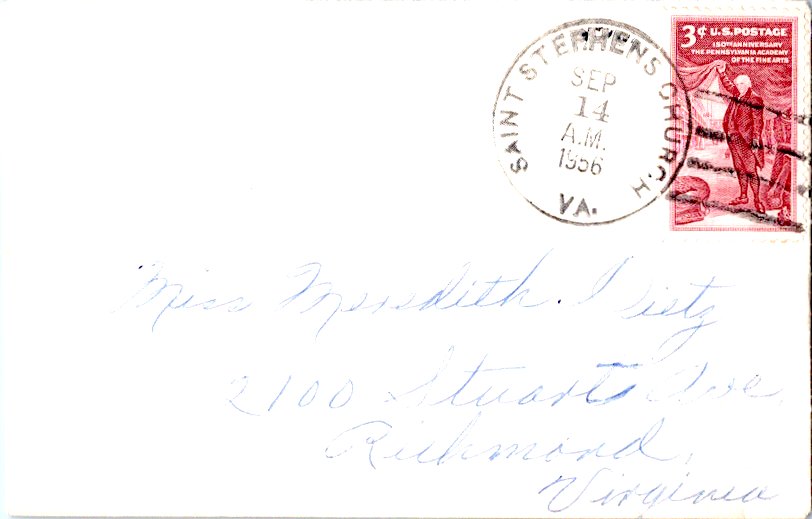 3¢ U.S. POSTAGE
150TH ANNIVERSARY
THE PENNSYLVANIA ACADEMY
OF THE FINE ARTS
SAINT STEPHENS CHURCH
SEP
14
A.M.
1956
VA.
Miss Meredith Dietz
2100 Stuart Ave.
Richmond,
Virginia